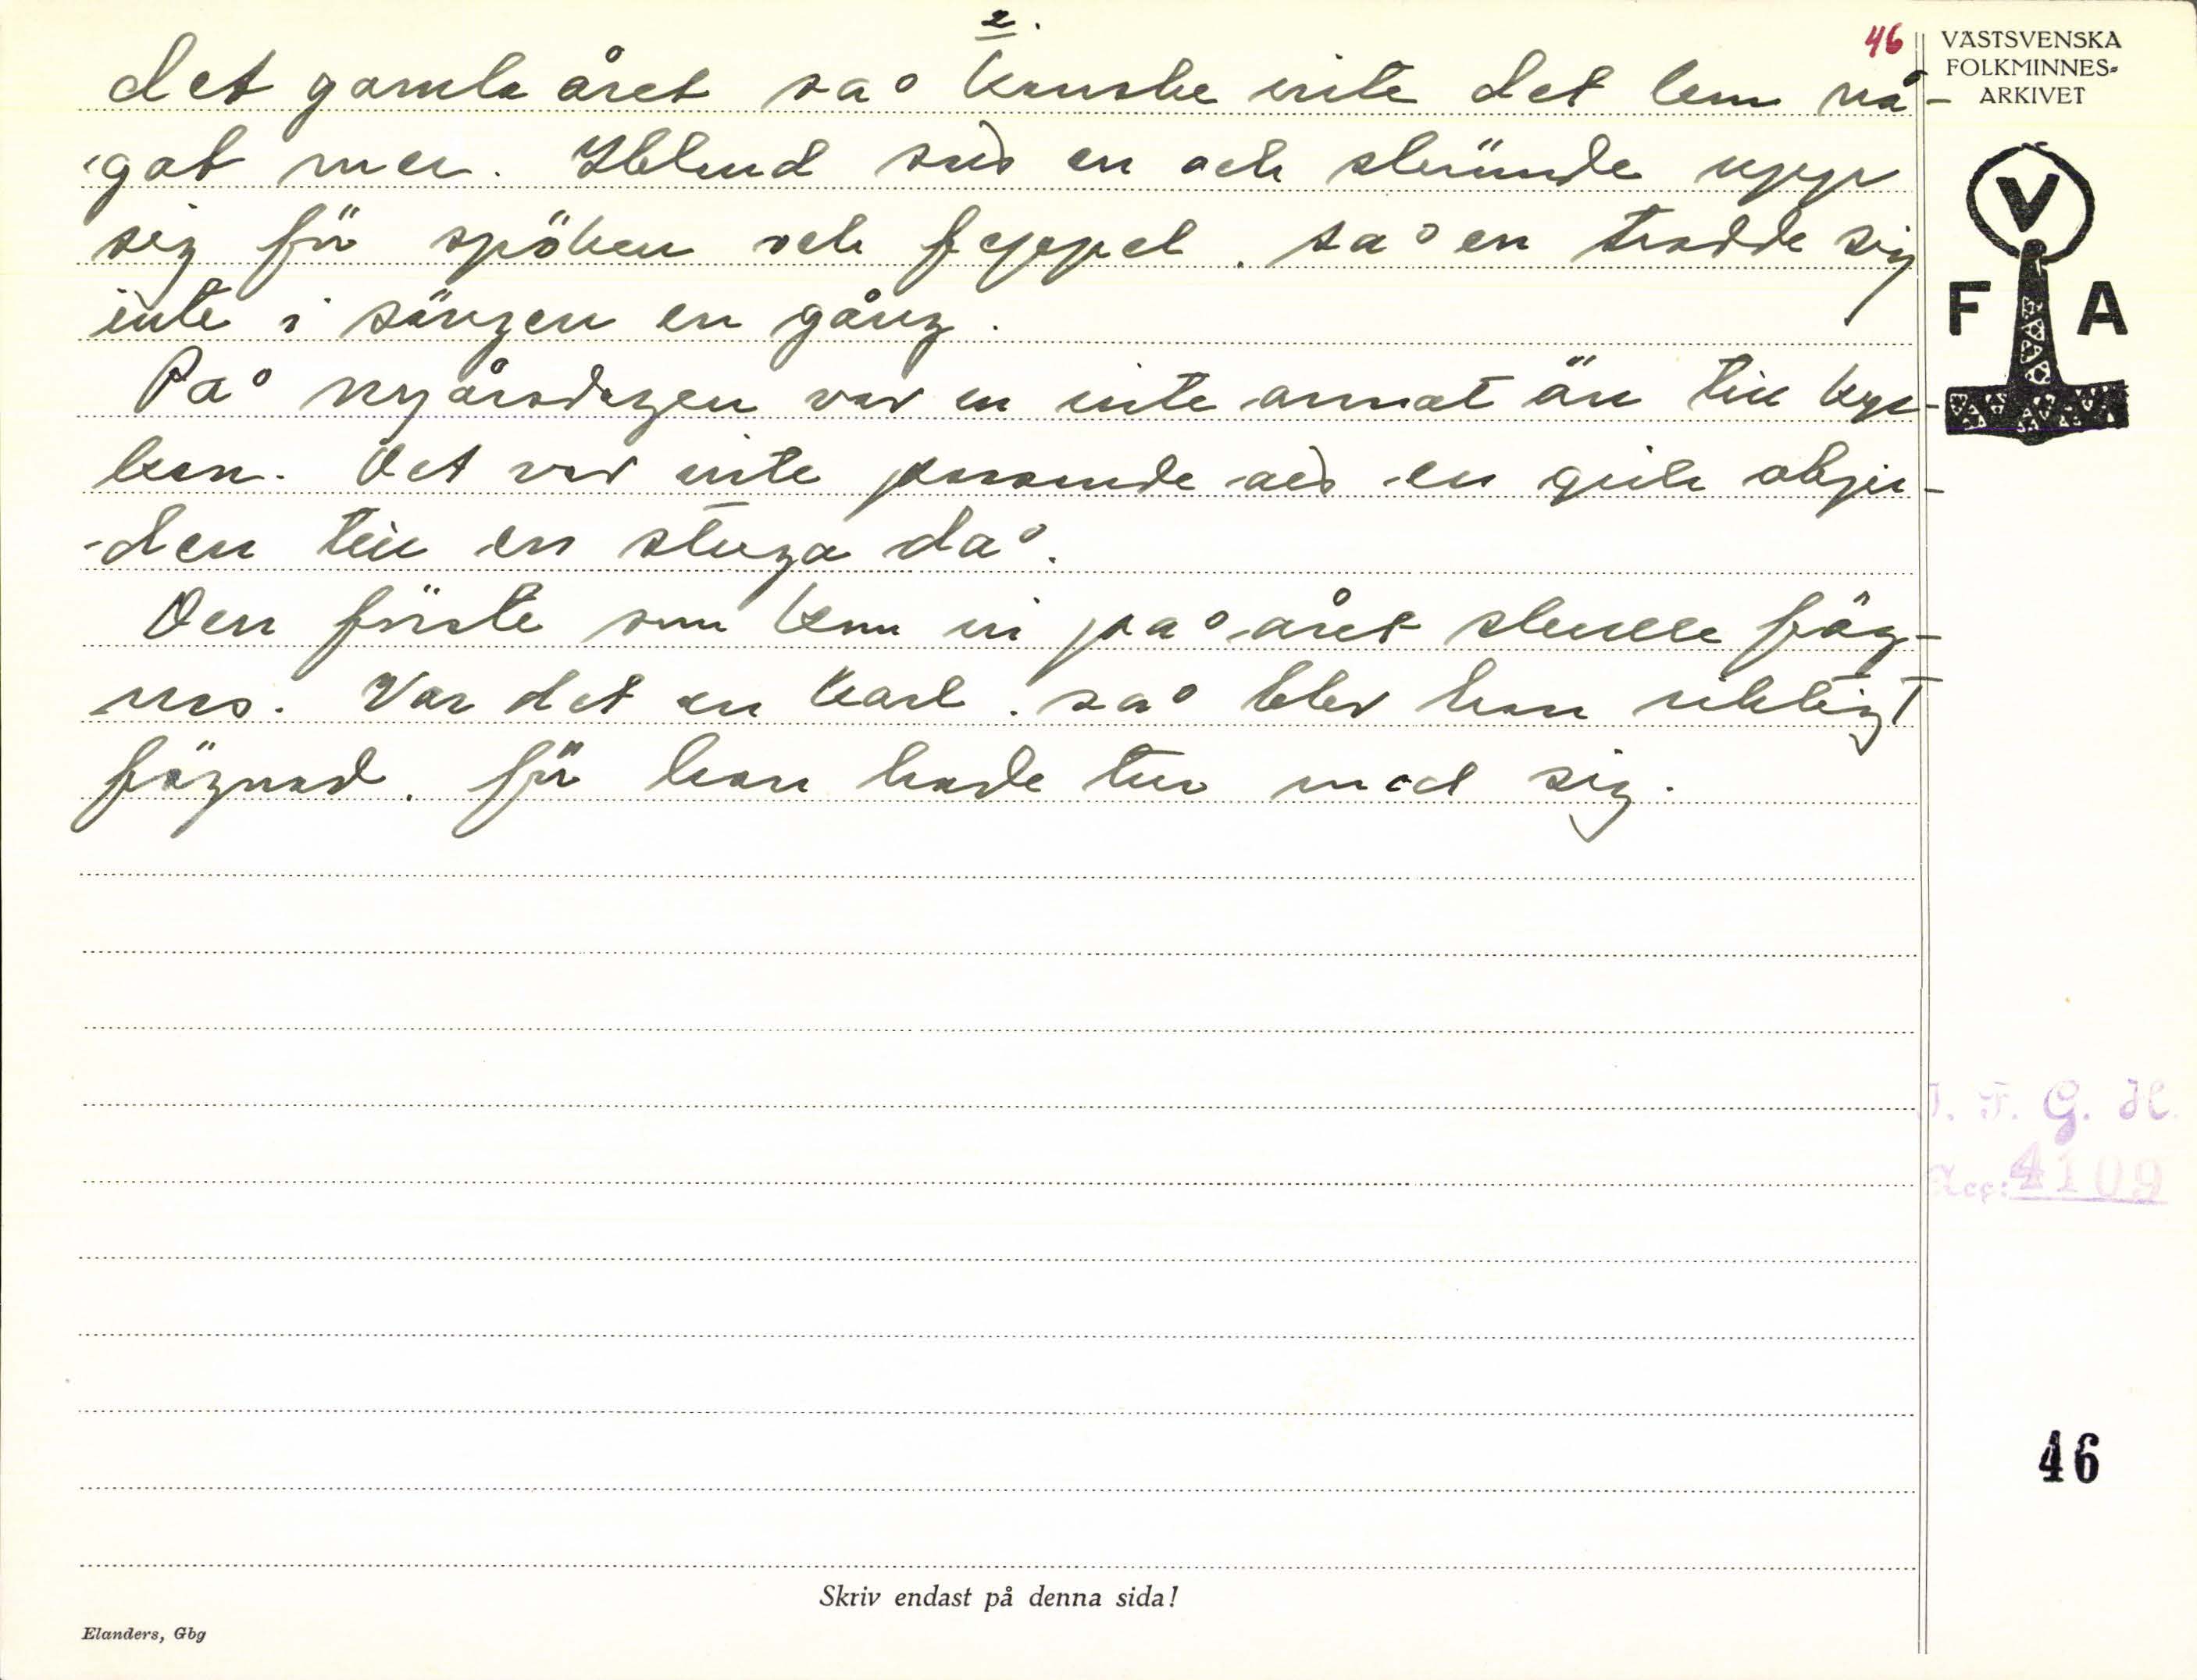 2.
46
VÄSTSVENSKA
FOLKMINNES-
ARKIVET
det gamla året så kanske inte det kom nå-
got mer. Ibland satt en och skrämde upp
sig för spöken och , så en trodde sig
inte i sängen en gång.
På nyårsdagen var en inte annat än till kyr-
kan. Det var inte passande att en gick obju-
den till en stuga då.
Den förste som kom in på året skulle fäg-
nas. Var det en karl, så blev han riktigt
fägnad, för han hade tur med sig.
V
F A
J. F. G. H.
Acc: 4109
46
Skriv endast på denna sida!
Elanders, Gbg